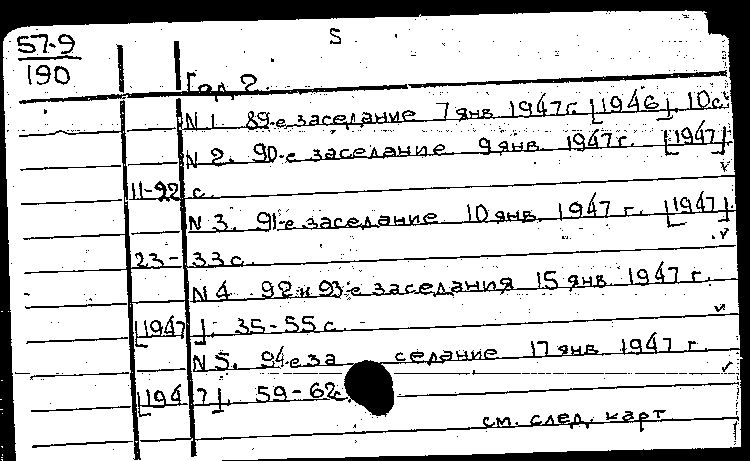 S
57-9
190
Год 2.
N 1. 89-е заседание 7 янв 1947 г. [1946]. 10 с.
N 2. 90-е заседание 9 янв. 1947 г. [1947]
11-22 с.
N 3. 91-е заседание 10 янв. 1947 г. [1947].
23-33 с.
N 4 92 и 93-е заседания 15 янв 1947 г.
[1947]. 35-55 с.
N 5. 94-е заседание 17 янв 1947 г
[1947]. 59-62 с
см. след. карт